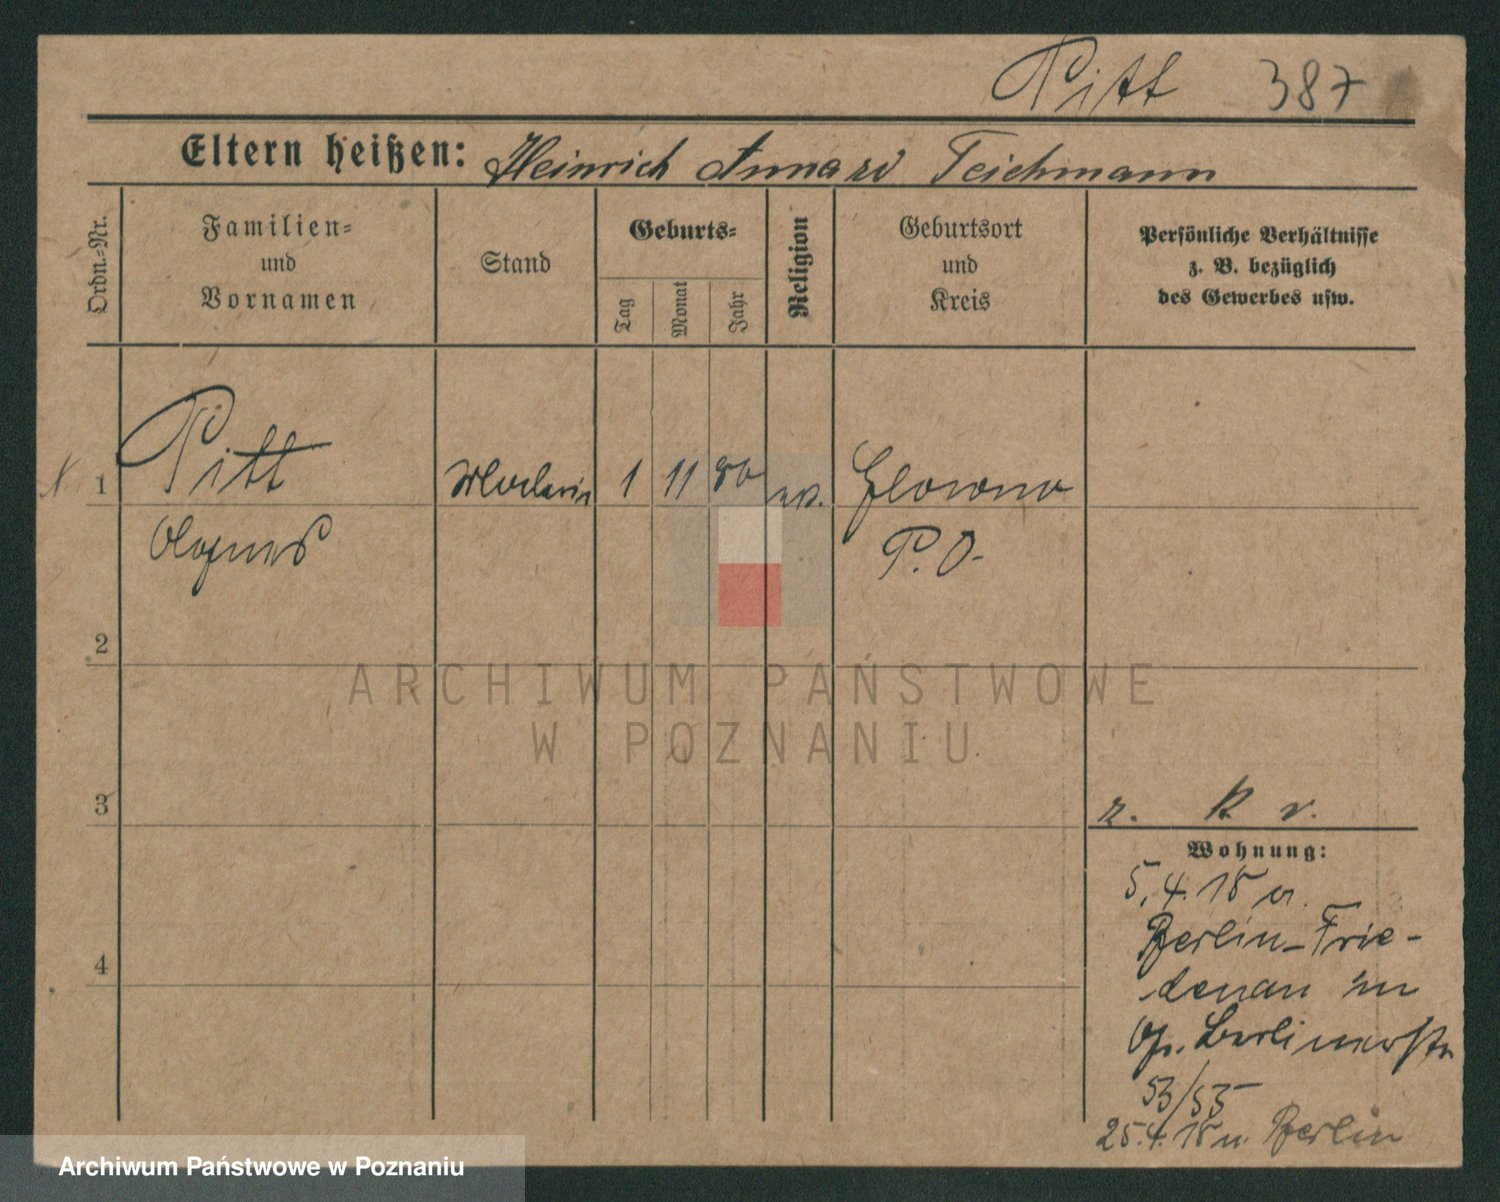 Pitt 387
Eltern heißen: Heinrich Teichmann
Ordn.=Nr.
Familien=
und
Vornamen
Stand
Geburts=
Tag
Monat
Jahr
Religion
Geburtsort
und
Kreis
Persönliche Verhältnisse
z. B. bezüglich
des Gewerbes usw.
1 Pitt 1 11 80
Agnes P. O.
2
3
4
Wohnung:
5. 4. 18 v.
Berlin-Frie-
denau
Berlinerstr
53/55
25. 4. 18 n. Berlin
ARCHIWUM PAŃSTWOWE
W POZNANIU
Archiwum Państwowe w Poznaniu